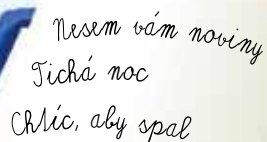 Nesem vám noviny
Tichá noc
Chtíc, aby spal